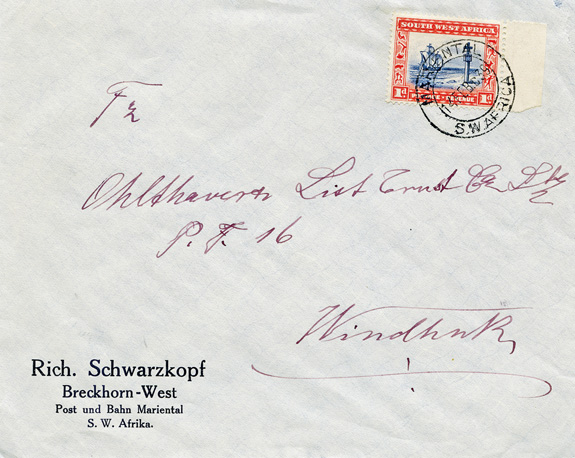 SOUTH WEST AFRICA
1d 1d
MARIENTAL
S.W. AFRICA
Ohlthavers List Trust Co
P. F. 16
Windhuk
Rich. Schwarzkopf
Breckhorn-West
Post und Bahn Mariental
S. W. Afrika.